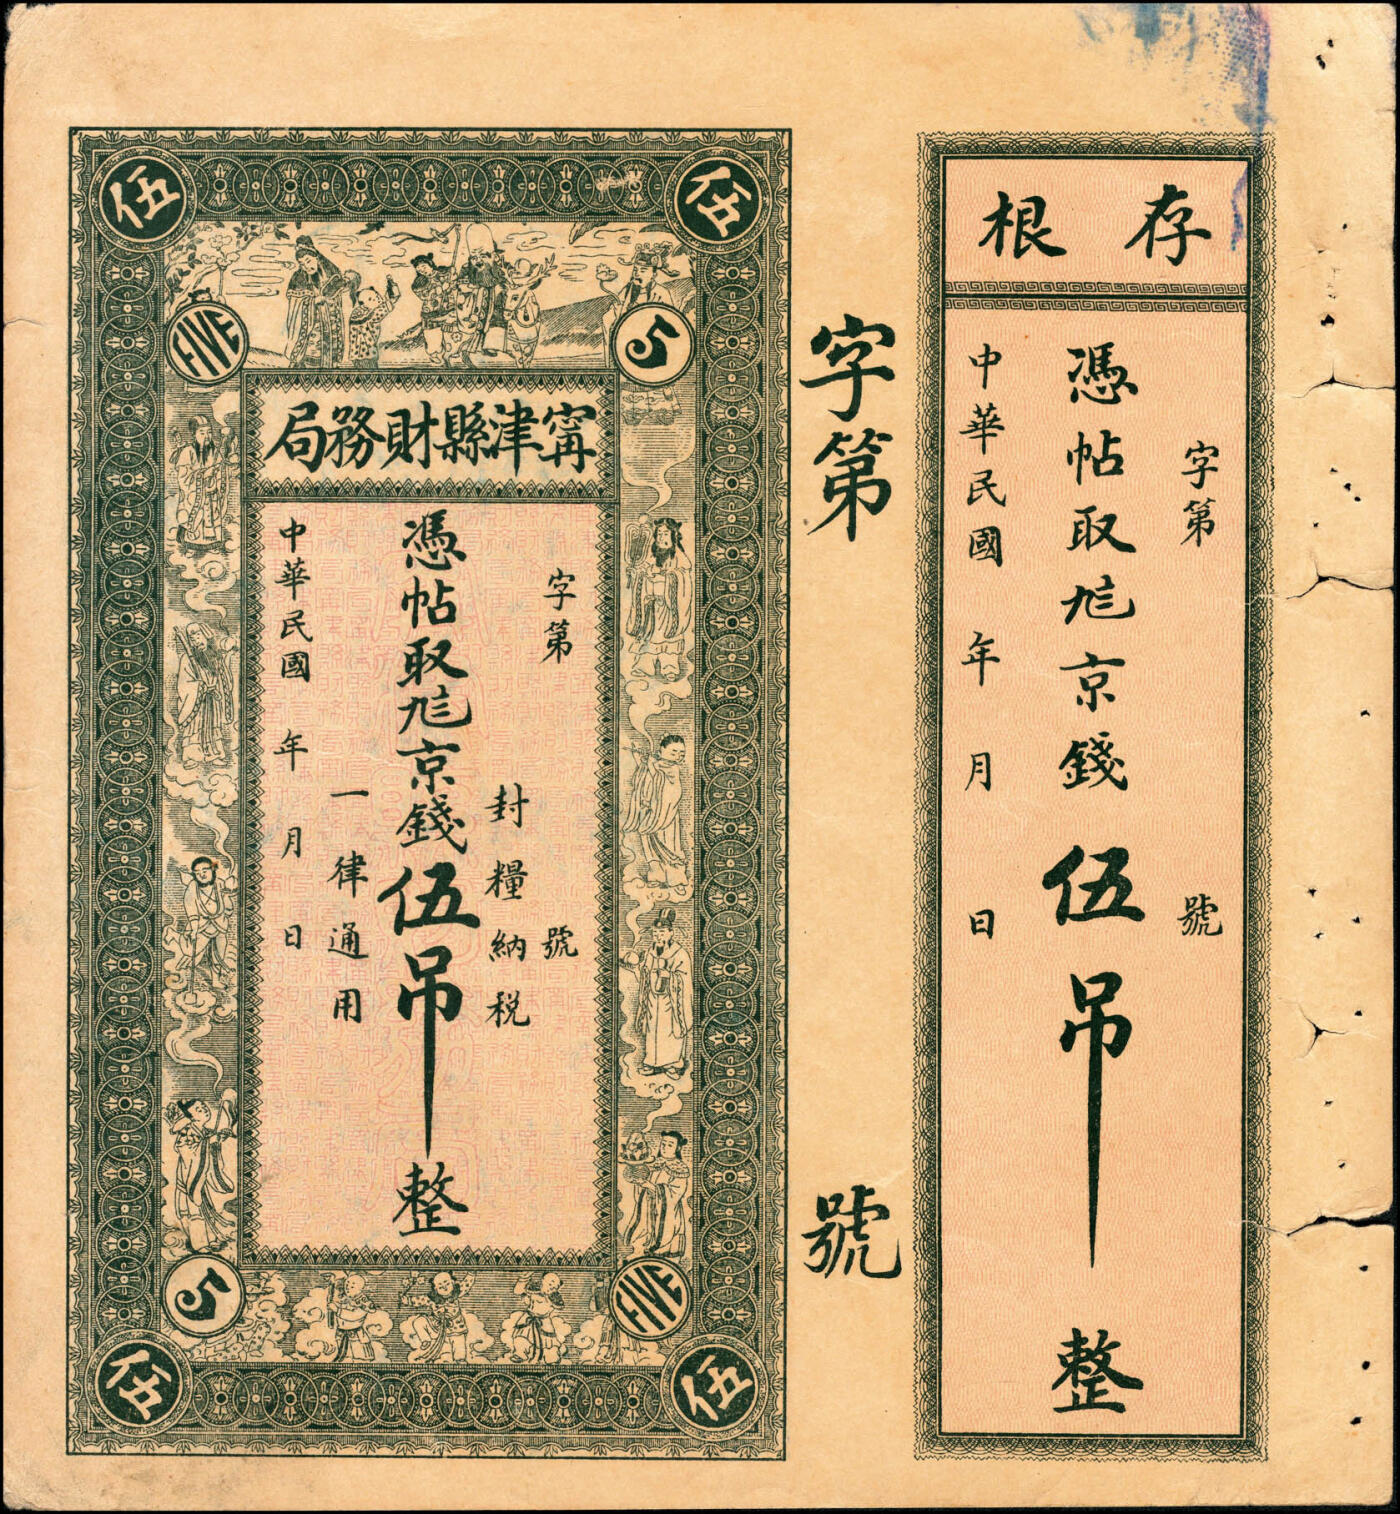 存根
字第 號
憑帖取 京錢伍吊整
中華民國 年 月 日
字第 號
伍
伍
FIVE
5
寗津縣財務局
字第 號
封糧納税
憑帖取 京錢伍吊整
一律通用
中華民國 年 月 日
5
FIVE
伍
伍